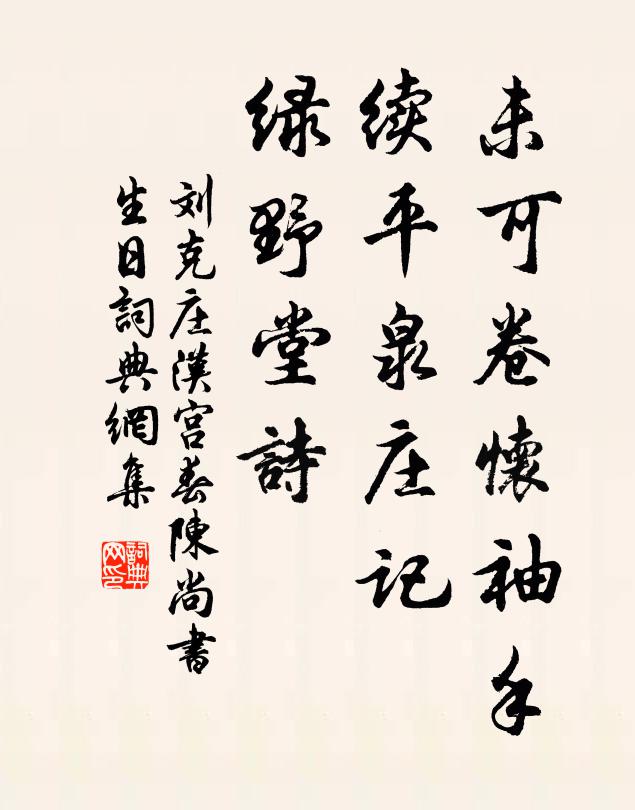 未可卷懷袖手
續平泉庄記
緑野堂詩
刘克庄漢宫春陳尚書
生日詞典網集
詞典
网印